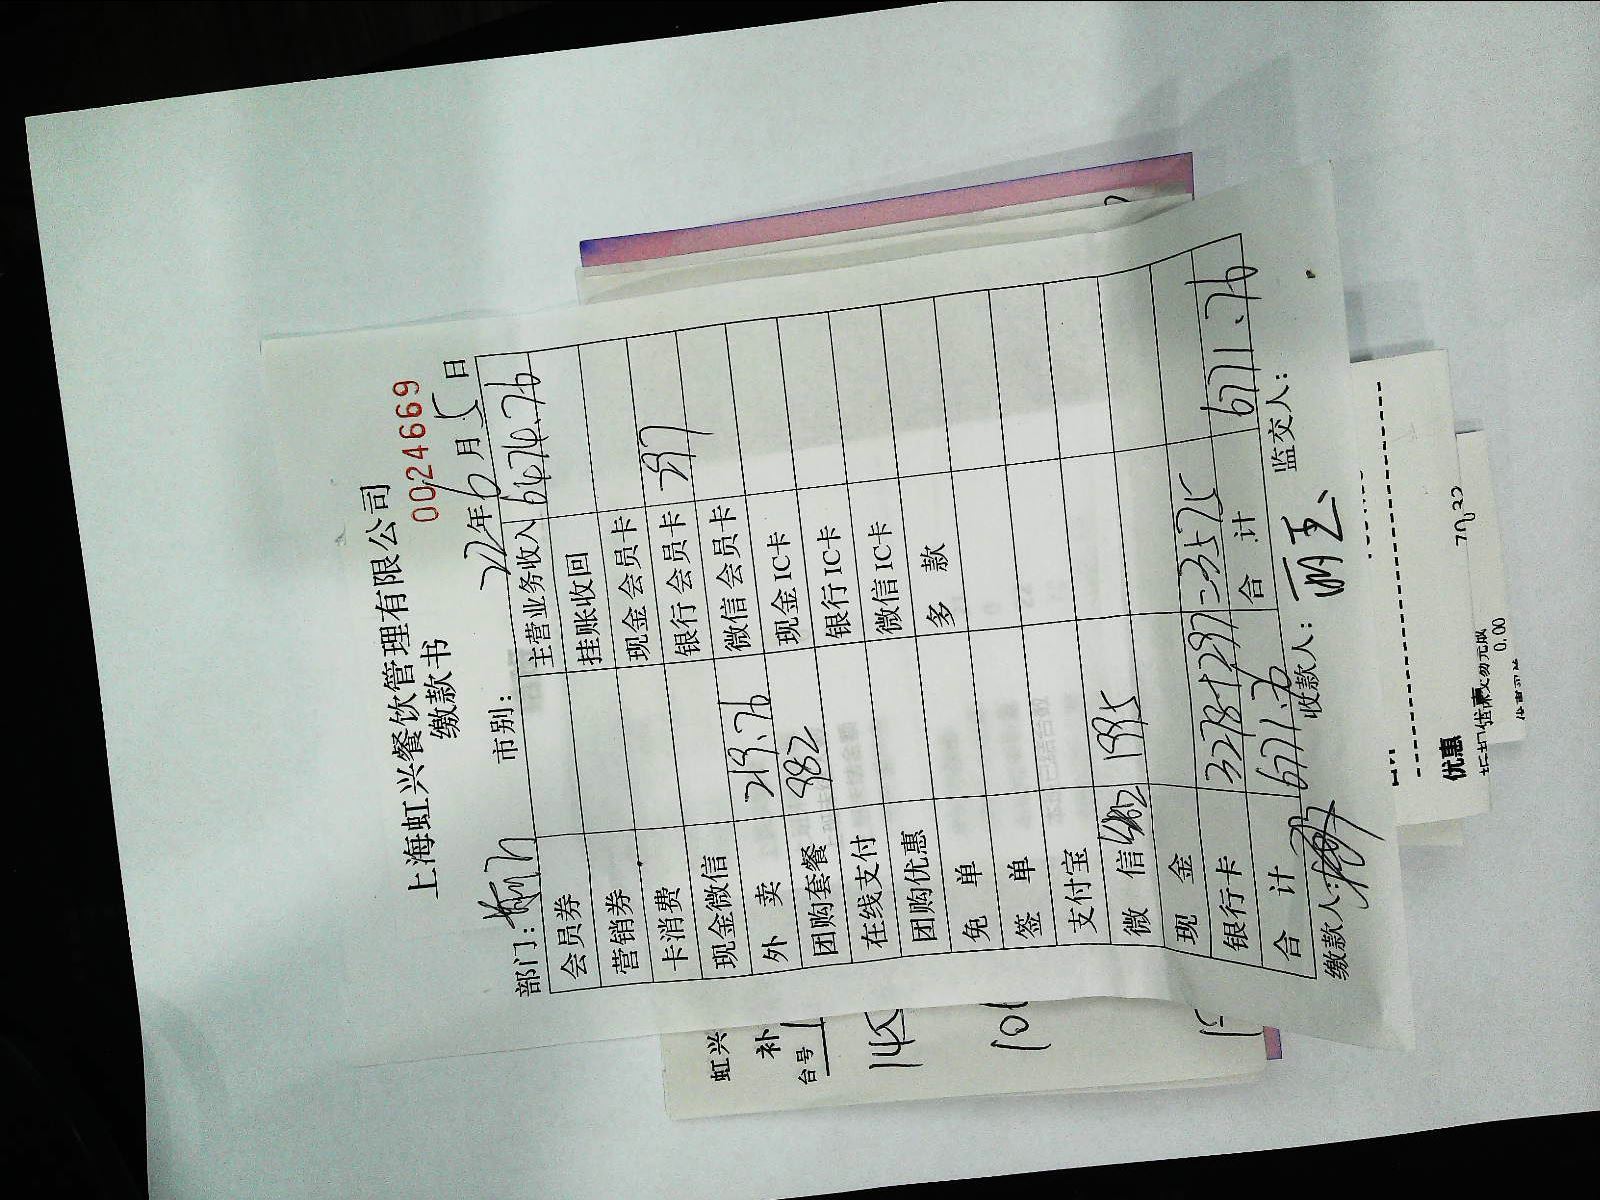 上海虹兴餐饮管理有限公司
缴款书
0024669
部门: 市别: 22年6月5日
会员券 主营业务收入 6474.76
营销券 挂账收回
卡消费 现金会员卡
现金微信 银行会员卡 297
外卖 219.76 微信会员卡
团购套餐 982 现金IC卡
在线支付 银行IC卡
团购优惠 微信IC卡
免单 多款
签单
支付宝
微信 1995
现金
银行卡 3278+297=3575
合计 6771.76 合计 6771.76
缴款人: 收款人: 监交人:
虹兴
补
台号
优惠
0.00